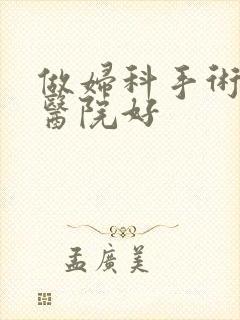 做婦科手術
醫院好
孟廣美